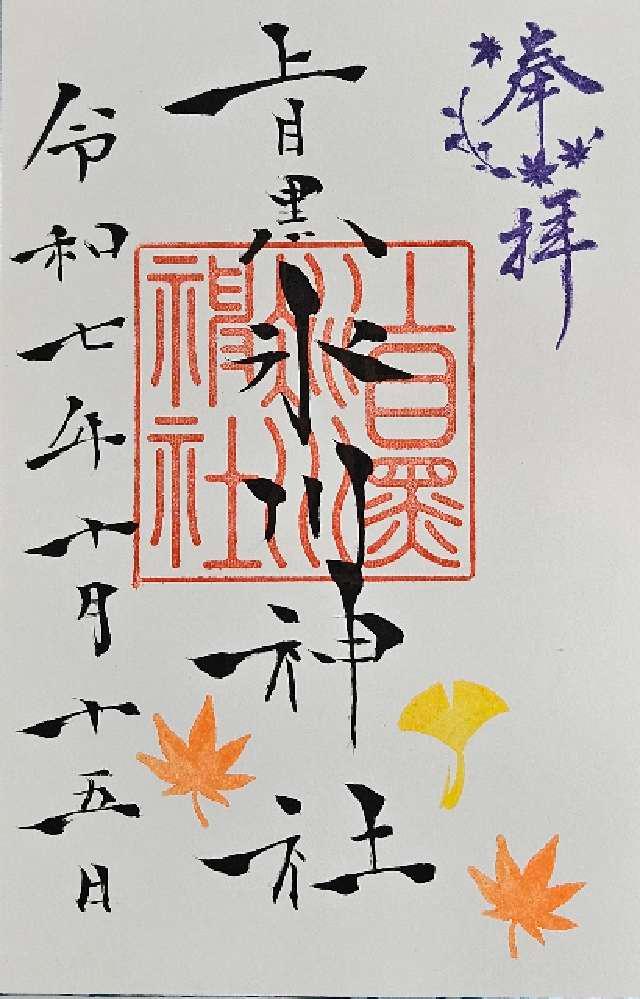 奉拝
上目黒氷川神社
上目黒氷川神社
令和七年十月十五日